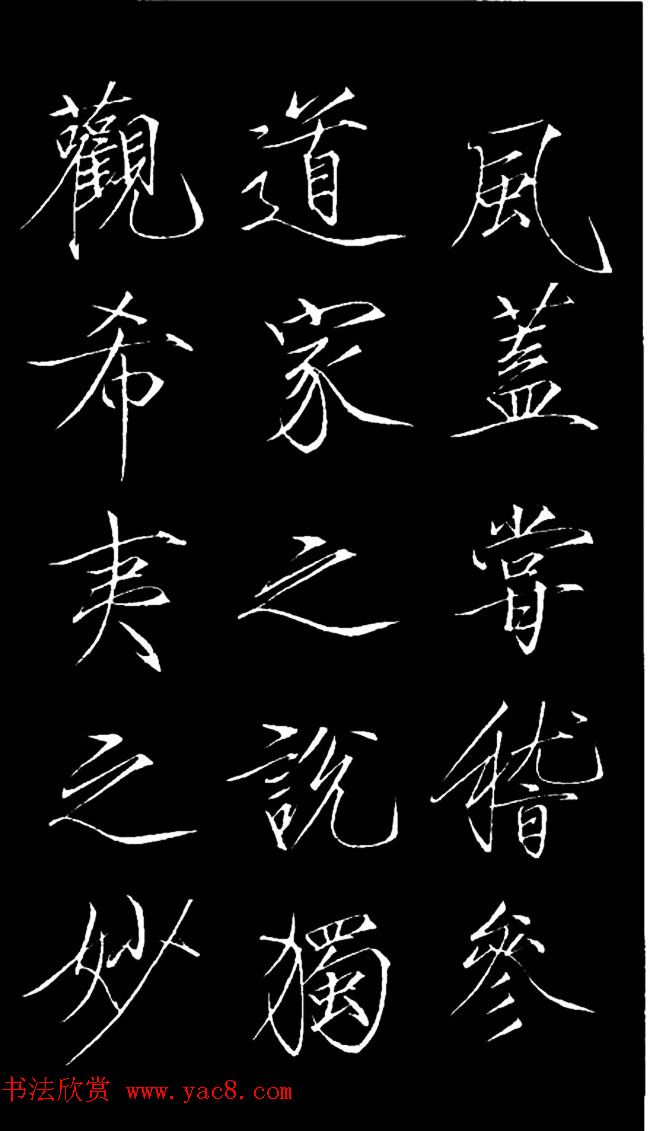 風蓋甞稽參
道家之説獨
觀希夷之妙
书法欣赏 www.yac8.com